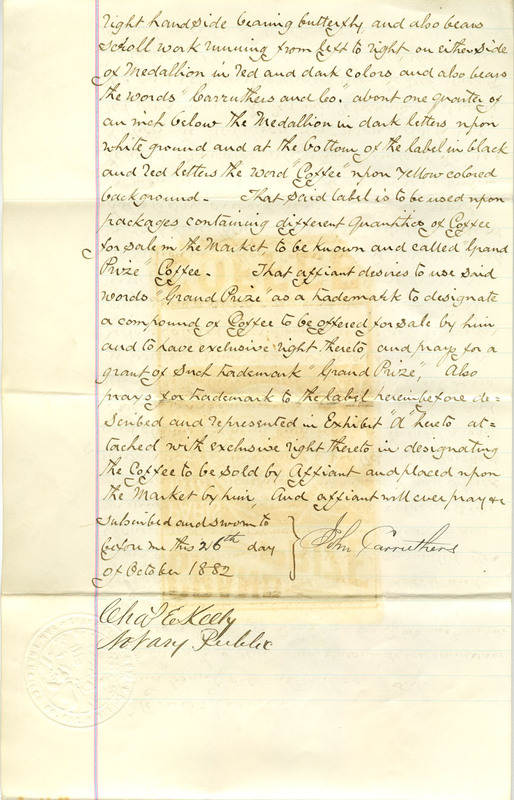 right hand side bearing butterfly, and also bears
scroll work running from left to right on either side
of Medallion in red and dark colors, and also bears
the words "Carruthers and Co." about one quarter of
an inch below the Medallion in dark letters upon
white ground and at the bottom of the label in black
and red letters the word "Coffee" upon yellow colored
background - That said label is to be used upon
packages containing different Quantities of Coffee
for sale in the Market, to be known and called "Grand
Prize" Coffee - That affiant desires to use said
words "Grand Prize" as a trademark to designate
a compound of Coffee to be offered for sale by him
and to have exclusive right thereto, and prays for a
grant of such trademark "Grand Prize", Also
prays for trademark to the label hereinbefore de=
scribed and represented in Exhibit "A" hereto at=
tached with exclusive right thereto in designating
the Coffee to be sold by Affiant and placed upon
the Market by him, And affiant will ever pray &c
subscribed and sworn to
before me this 26th day
of October 1882
John Carruthers
Chas E Kelly
Notary Public